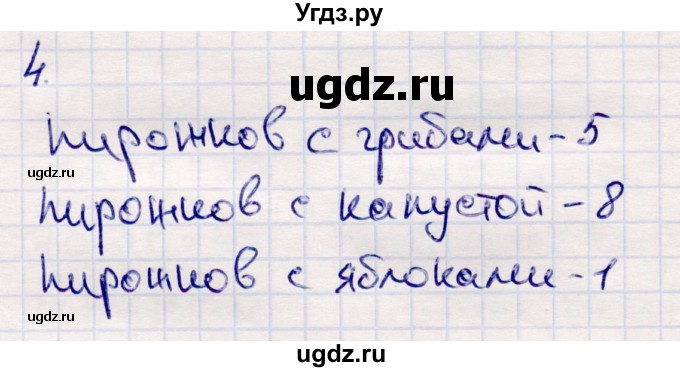 Угдз.ру
4.
ugdz.ru
пирожков с грибами - 5
ugdz.ru
пирожков с капустой - 8
ugdz.ru
пирожков с яблоками - 1
ugdz.ru
ugdz.ru